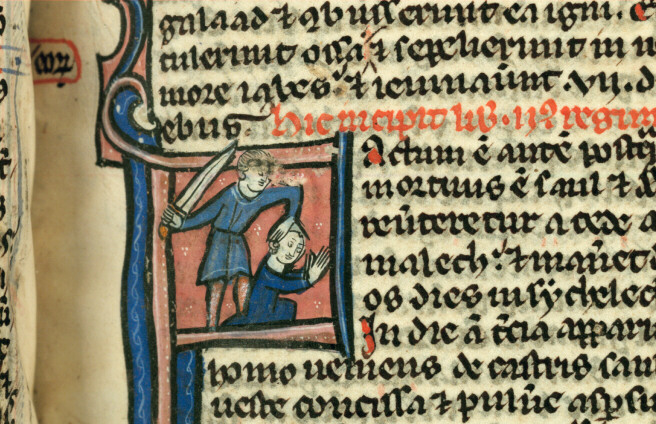 galaad ⁊ 9busserunt ea igni. et
tulerunt ossa ⁊ sepelierunt in n
more iabes. ⁊ ieiunauint .vii. d
ebus. Hic incipit lib. ii9 regum
Actum ē autē postq
mortuus ē saul ⁊ d
reūteretur a cede a
malech. ⁊ manet d
os dies in sychelech
In die ā t̄cia appari
homo ueniens de castris sau
ueste concissa ⁊ puluē aspsu
cor̄